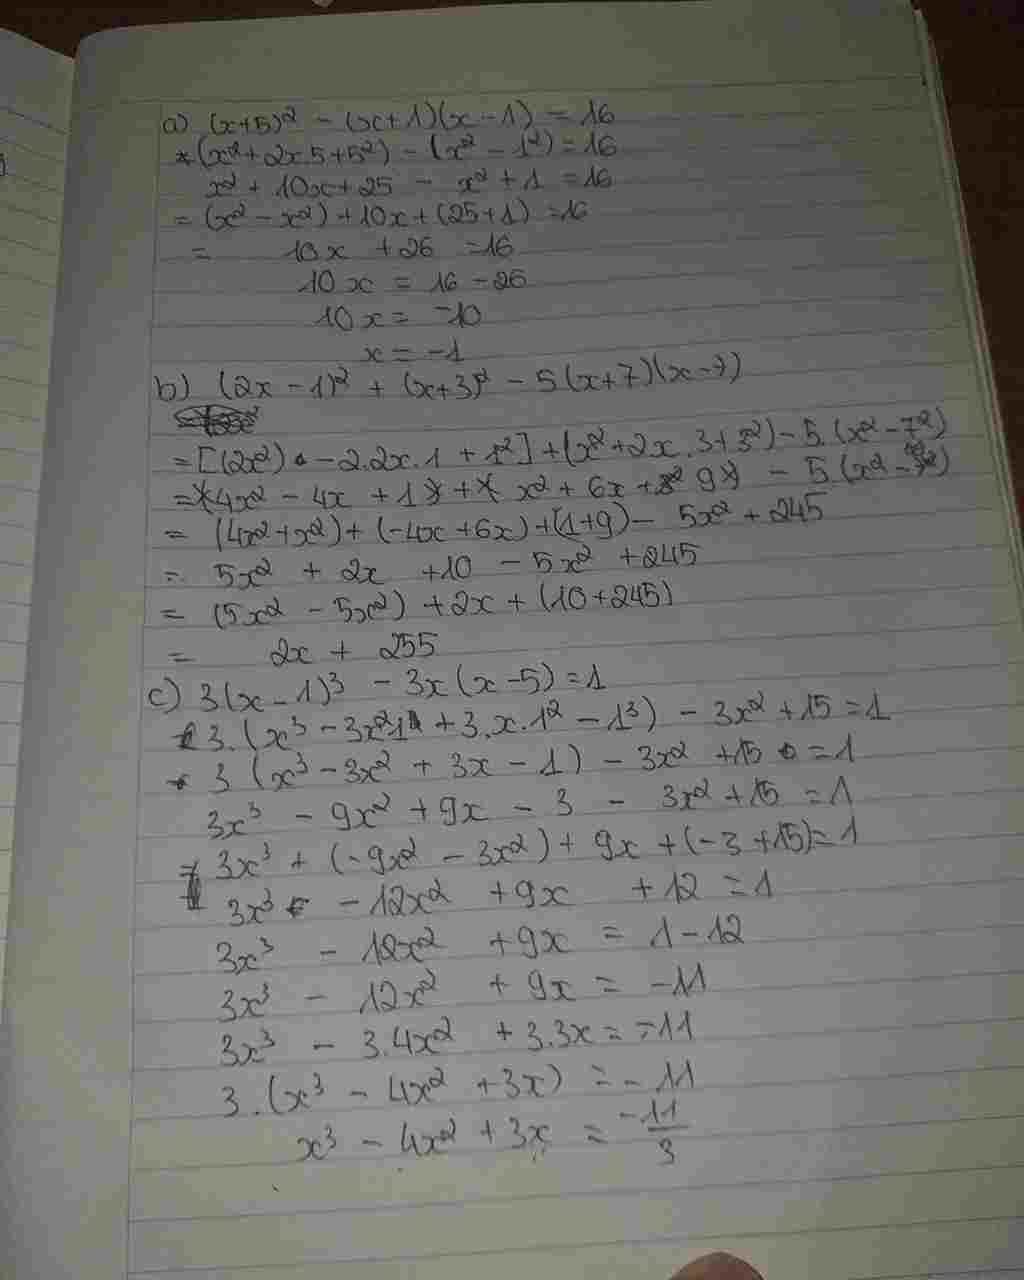 a) (x+5)² - (x+1)(x-1) = 16
(x²+2x5+5²) - (x²-1²) = 16
x² + 10x + 25 - x² + 1 = 16
= (x² - x²) + 10x + (25+1) = 16
= 10x + 26 = 16
10x = 16 - 26
10x = -10
x = -1
b) (2x - 1)² + (x+3)² - 5(x+7)(x-7)
= [(2x²) - 2.2x.1 + 1²] + (x²+2x.3+3²) - 5.(x²-7²)
= 4x² - 4x + 1 + x² + 6x + 9 - 5.(x²-)
= (4x²+x²) + (-4x+6x) + (1+9) - 5x² + 245
= 5x² + 2x + 10 - 5x² + 245
= (5x² - 5x²) + 2x + (10+245)
= 2x + 255
c) 3(x-1)³ - 3x(x-5) = 1
3.(x³ - 3x²1 + 3.x.1² - 1³) - 3x² + 15 = 1
3(x³ - 3x² + 3x - 1) - 3x² + 15 = 1
3x³ - 9x² + 9x - 3 - 3x² + 15 = 1
3x³ + (-9x² - 3x²) + 9x + (-3+15) = 1
3x³ - 12x² + 9x + 12 = 1
3x³ - 12x² + 9x = 1 - 12
3x³ - 12x² + 9x = -11
3x³ - 3.4x² + 3.3x = -11
3.(x³ - 4x² + 3x) = -11
x³ - 4x² + 3x = -11/3